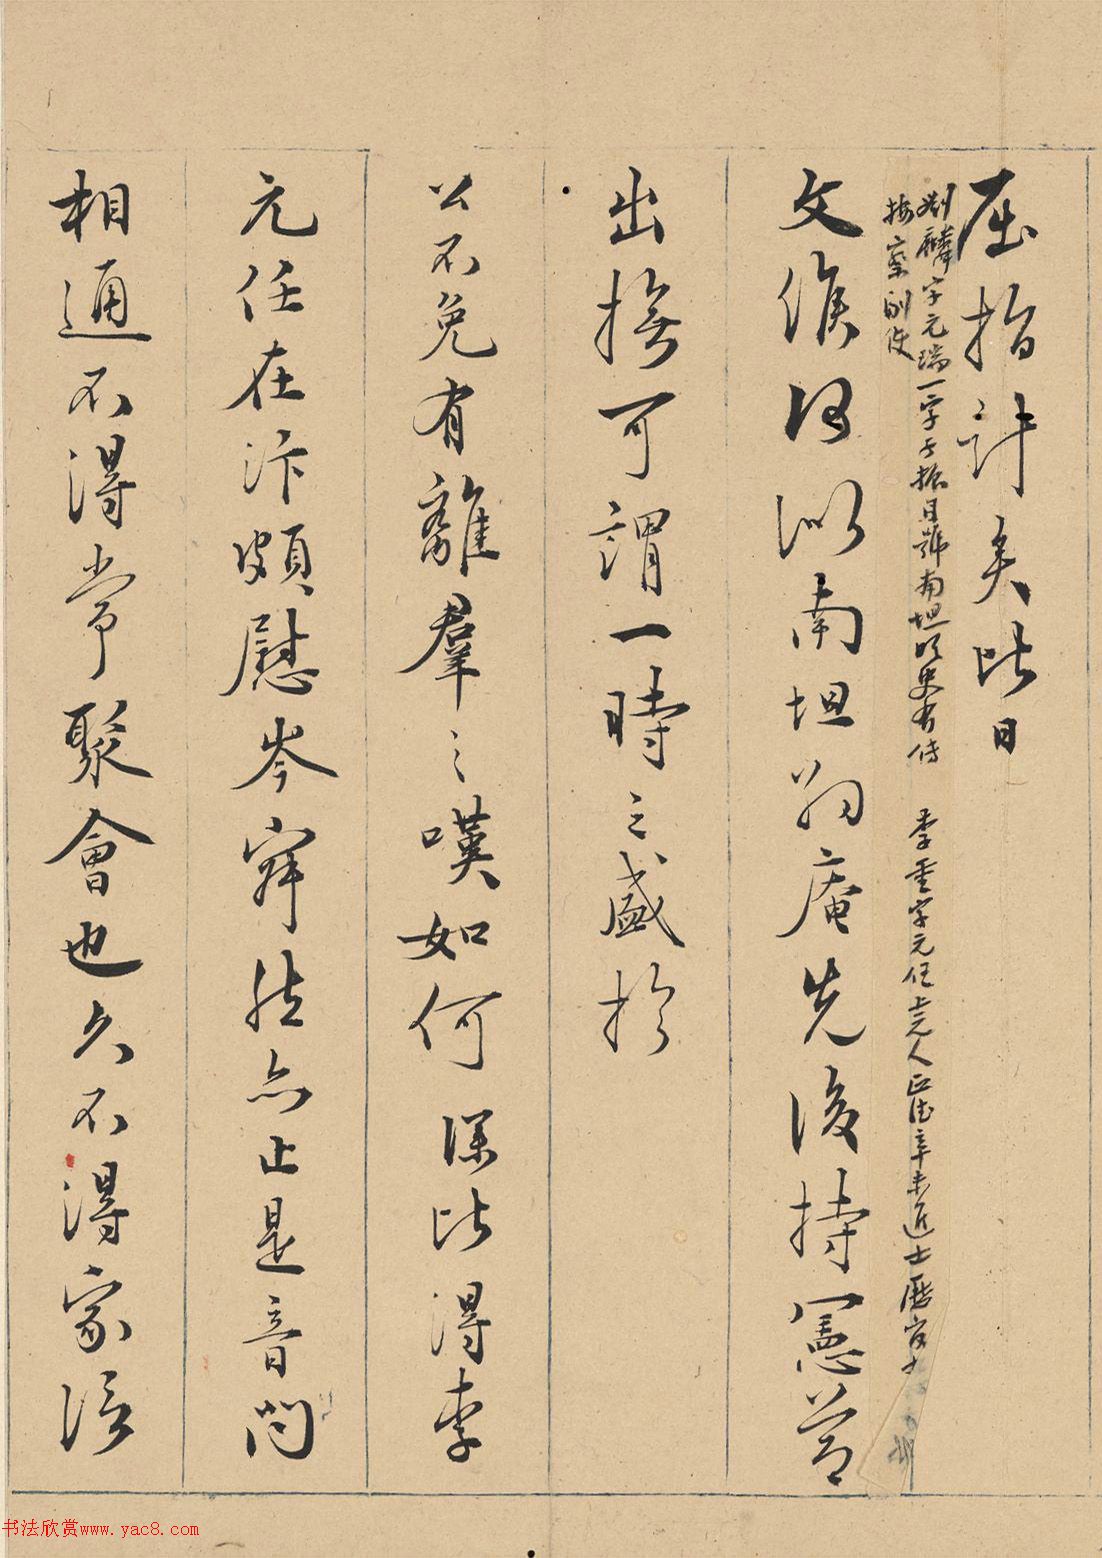 屈指計矣比日
劉麟字元瑞一字子振自號南坦明史有傳 季重字元任上元人正德辛未進士歷官
按察副使
文侯得以南坦初庵先後持憲節
出撫可謂一時之盛於
公不免有離羣之嘆如何深比得李
元任在汴頗慰岑寂然亦止是音問
相通不得常聚會也久不得家信
书法欣赏www.yac8.com